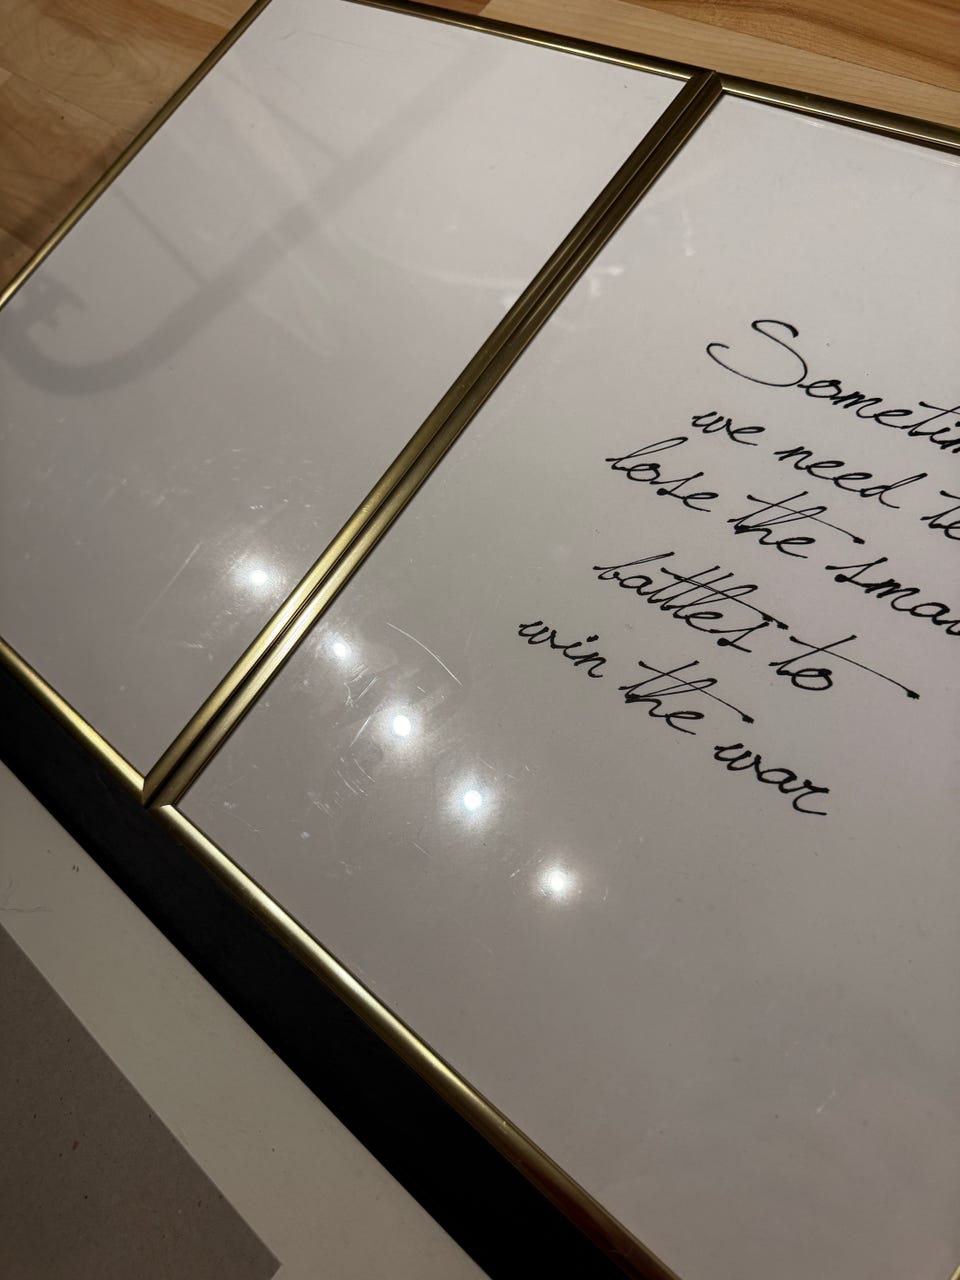 Sometim
we need to
lose the smal
battles to
win the war